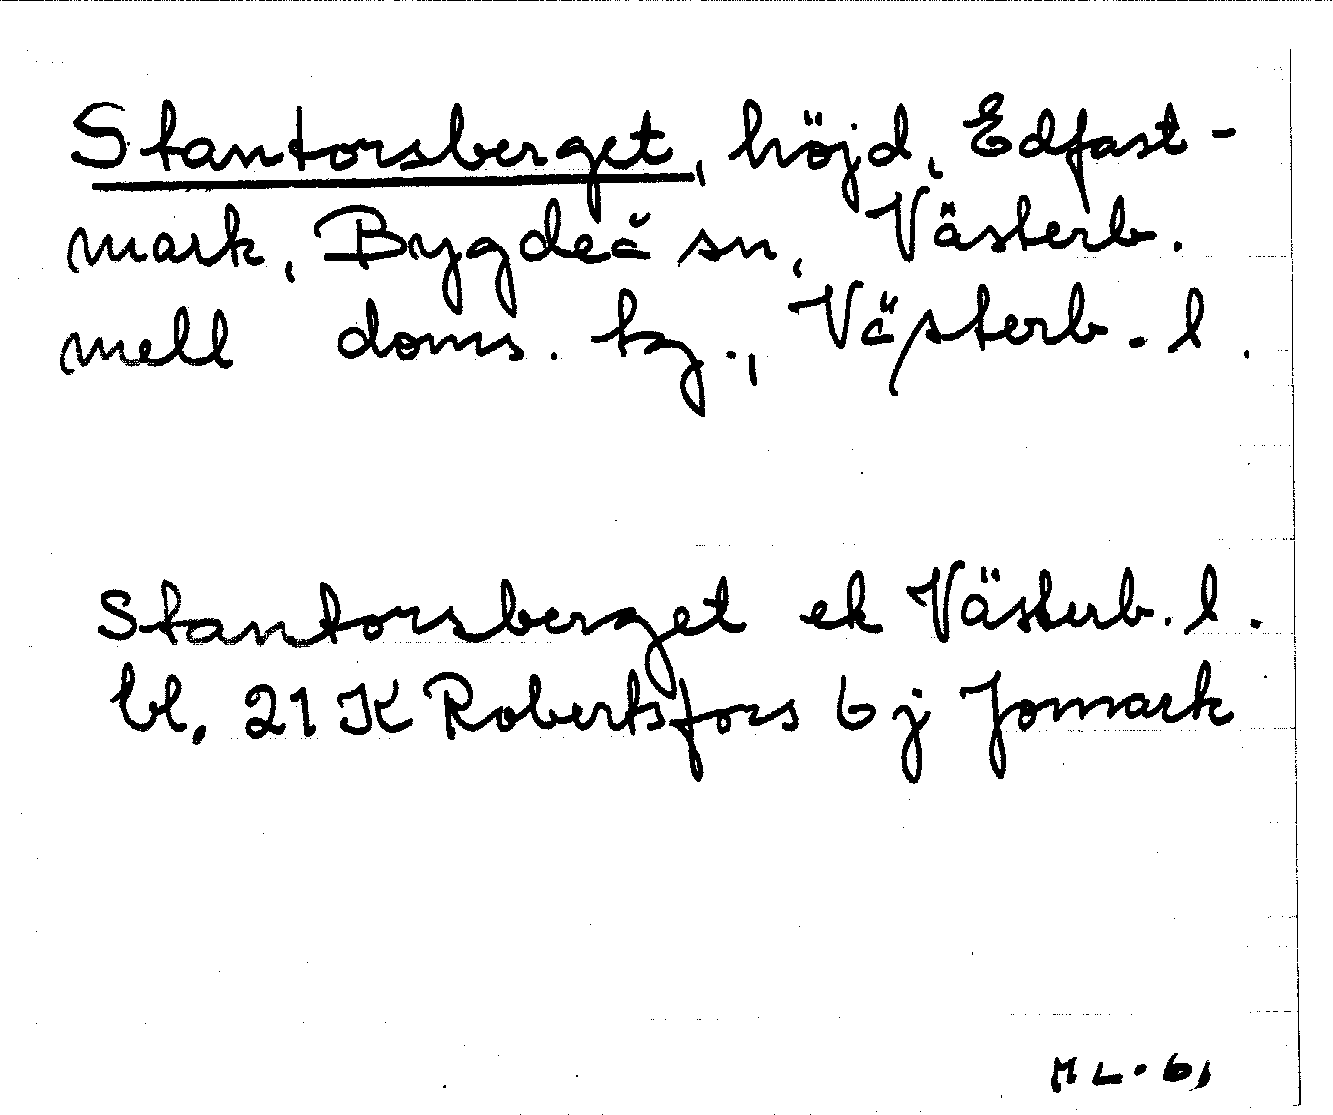 Stantorsberget, höjd, Edfast-
mark, Bygdeå sn, Västerb.
mell doms. kg., Västerb. l.
Stantorsberget ek Västerb. l.
bl. 21 K Robertsfors 6 j Jomark
ML. 61